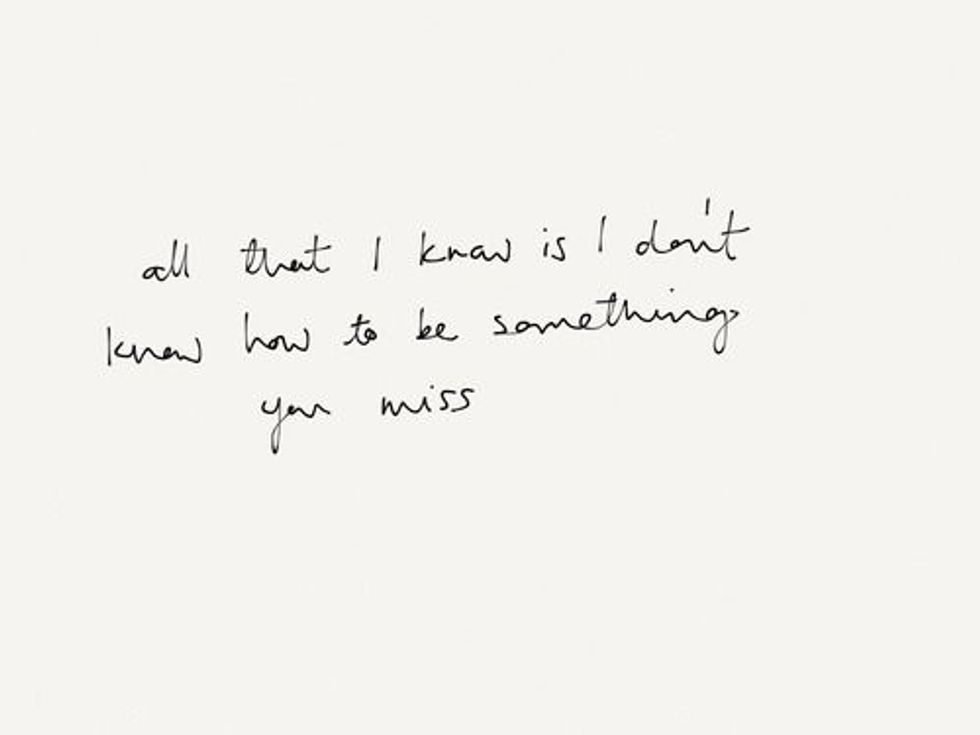 all that I know is I don't
know how to be something
you miss